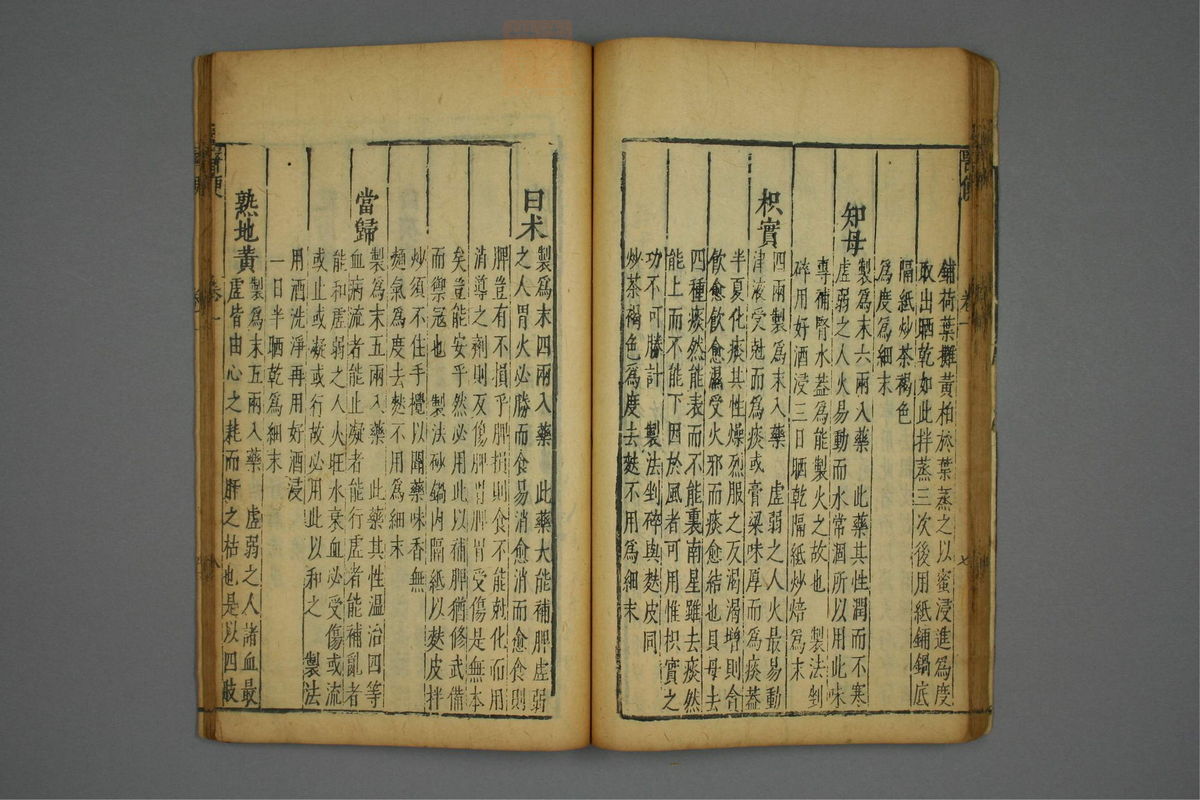 鋪荷葉攤黃柏於葉蒸之以蜜浸進爲度
取出晒乾如此拌蒸三次後用紙鋪鍋底
隔紙炒茶褐色
爲度爲細末
知母
製爲末六兩入藥　此藥其性潤而不寒
虛弱之人火易動而水常涸所以用此味
專補腎水葢爲能製火之故也　製法剉
碎用好酒浸三日晒乾隔紙炒焙爲末
枳實
四兩製爲末入藥　虛弱之人火最易動
津液受尅而爲痰或膏粱味厚而爲痰葢
半夏化痰其性燥烈服之反渴渴增則會
飲愈飲愈濕受火邪而痰愈結也貝母去
四種痰然能表而不能裏南星雖去痰然
能上而不能下因於風者可用惟枳實之
功不可勝計　製法剉碎與麩皮同
炒茶褐色爲度去麩不用爲細末
白朮
製爲末四兩入藥　此藥大能補脾虛弱
之人胃火必勝而食易消愈消而愈食則
脾豈有不損乎脾損則食不能尅化而用
消導之劑則反傷脾胃脾胃受傷是無本
矣豈能安乎然必用此以補脾猶修武備
而禦冦也　製法砂鍋內隔紙以麩皮拌
炒須不住手攪以聞藥味香無
麺氣爲度去麩不用爲細末
當歸
製爲末五兩入藥　此藥其性溫治四等
血病流者能止凝者能行虛者能補亂者
能和虛弱之人火旺水衰血必受傷或流
或止或凝或行故必用此以和之　製法
用酒洗淨再用好酒浸
一日半晒乾爲細末
熟地黃
製爲末五兩入藥　虛弱之人諸血最
虛皆由心之耗而肝之枯也是以四肢